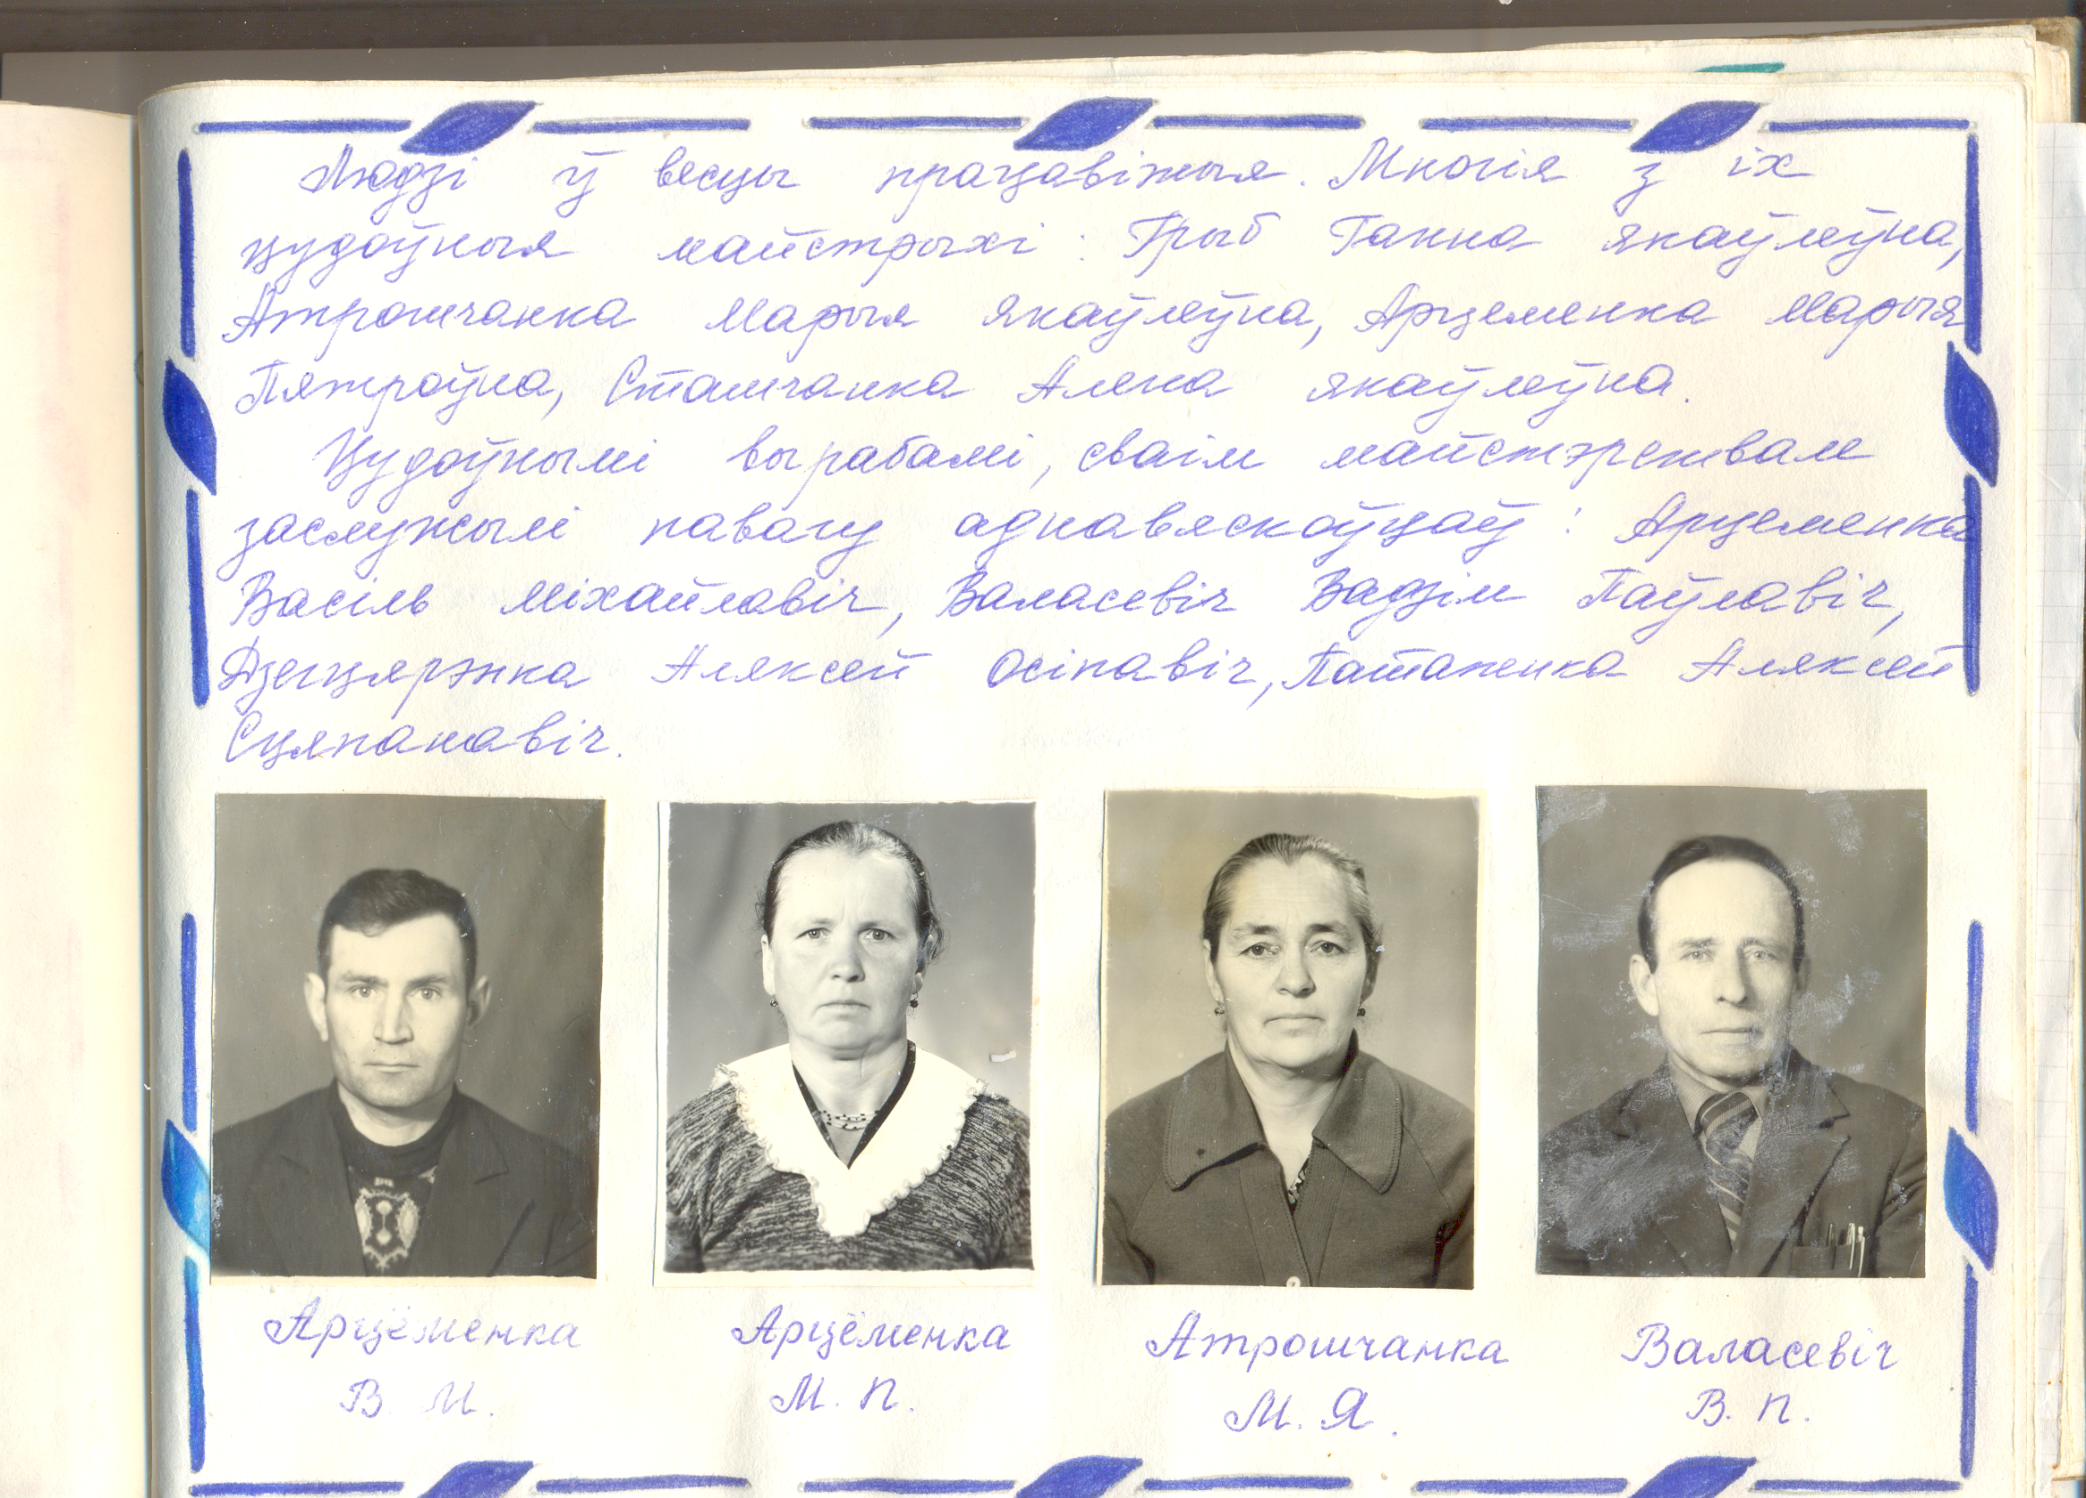 Людзі ў весцы працавітыя. Многія з іх
цудоўныя майстрыхі: Грыб Ганна Якаўлеўна,
Атрошчанка Марыя Якаўлеўна, Арцеменка Марыя
Пятроўна, Сташчанка Алена Якаўлеўна.
Цудоўнымі вырабамі, сваім майстэрствам
заслужылі павагу аднавяскоўцаў: Арцеменка
Васіль Міхайлавіч, Валасевіч Вадзім Паўлавіч,
Дзегцярэнка Аляксей Осіпавіч, Патапенка Аляксей
Сцяпанавіч.
Арцёменка Арцёменка Атрошчанка Валасевіч
В. М. М. П. М. Я. В. П.